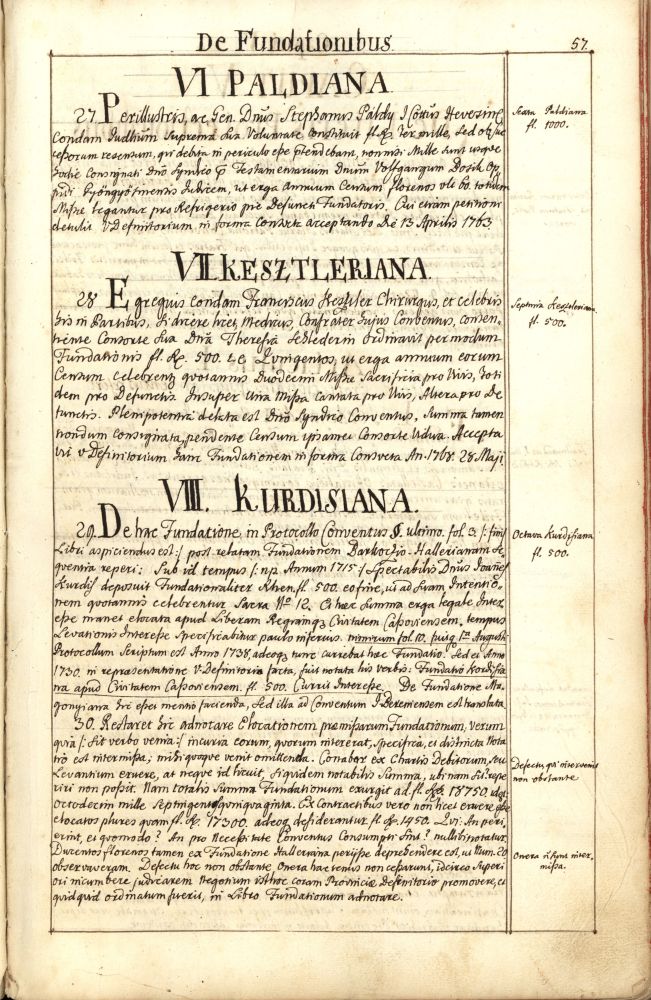 De Fundationibus
57.
VI PALDIANA
27. Perillustris, ac Gen. Dnus Stephanus Páldy I Cottus Heveszin
Condam Judlium Suprema sua Voluntate Constituit fl. Rh. Ter mille, sed ob suc
cessorum resensum, qui debita in periculo esse prtendebant, non nisi Mille sunt usque
hodie Consignati Dno Syndico Testamentarium Dnum Volfgangum Dosik Op
pidi Gyöngyösiensis Judicem, ut erga Annuum Censum florenos vlt 60. totidem
Missae legantur pro Refrigerio pie Defuncti Fundatoris. Qui etiam petitioni
detulit V. Definitorium in forma Consveta acceptando Die 13 Aprilis 1763
Sexta Paldiana
fl. 1000.
VII KESZTLERIANA.
28 Egregius Condam Franciscus Kesztler Chirurgus, et celebris
his in Partibus, si dicere licet, Medicus, Confrater hujus Conventus, consen-
tiente Consorte sua Dna Theresia Schlederin Ordinavit per modum
Fundationis fl. Rh. 500. i.e. Quingentos, ut erga annuum eorum
Censum celebrentur quotannis Duodecim Missae Sacrificia pro Vivis, Toti
dem pro Defunctis Insuper Una Missa Cantata pro Vivis, Altera pro De
functis. Plenipotentia delata est Dno Syndico Conventus, Summa tamen
nondum consignata, pendente Censum ipsamet Consorte Vidua. Accepta
vit V. Definitorium hanc Fundationem in forma Consveta An. 1768. 28. Maji
Septima Kesztleriana
fl. 500.
VIII. KURDISIANA.
29. De hac Fundatione in Protocollo Conventus §. ultimo. fol. 3. /: hujus
Libri aspiciendus est :/ post relatam Fundationem Barkoczio-Hallerianam se
quentia reperi: Sub id tempus /: n.p. Annum 1715 :/ Spectabilis Dnus Joannes
Kurdis deposuit Fundationaliter Rhen. fl. 500. eo fine, ut ad suam Intentio-
nem quotannis celebrentur Sacra No 12. Et haec Summa erga legale Inter
esse manet elocata apud Liberam Regiamque Civitatem Cassoviensem, tempus
Levationis Interesse Specificabitur paulo inferius. nimirum fol. 10. fuisse 1ma Augusti
Protocollum Scriptum est Anno 1738, adeoque tunc currebat haec Fundatio. Sed et Anno
1730. in repraesentatione V. Definitorio facta, fuit notata his verbis: Fundatio Kordisia
na apud Civitatem Cassoviensem. fl. 500. Currit Interesse. De Fundatione Mo
gonyiana hic esset mentio facienda, sed illa ad Conventum S. Deremensem est translata.
Octava Kurdisiana
fl. 500.
30. Restaret hic adnotare Elocationem praemissarum Fundationum, verum
quia /: sit verbo venia :/ incuria eorum, quorum intererat, Specifica, et districta Nota
tio est intermissa; mihi quoque venit omittenda. Conabar ex Chartis Debitorum, seu
Levantium eruere, at neque id licuit, siquidem notabilis Summa, ubinam sit repe
riri non possit. Nam totalis Summa Fundationum exurgit ad fl. Rh. 18750. idest
octodecim mille Septingentos quinquaginta. Ex Contractibus vero non licet eruere esse
elocatos plures quam fl. Rh. 17300. adeoque desiderantur fl. Rh. 1450. Qui An peri
erint, et quomodo? An pro Necessitate Conventus Consumpti sint? nullibi notatur.
Ducentos florenos tamen ex Fundatione Halleriana periisse deprehendere est, ut Num. 20
observaveram. Defectu hoc non obstante Onera hactenus non cessarunt, idcirco Superi
ori incumbere judicarem Negotium isthoc coram Provinciae Definitorio promovere, et
quidquid ordinatum fuerit, in Libro Fundationum adnotare.
Defectu, qui intervenit
non obstante
Onera n sunt inter
missa.